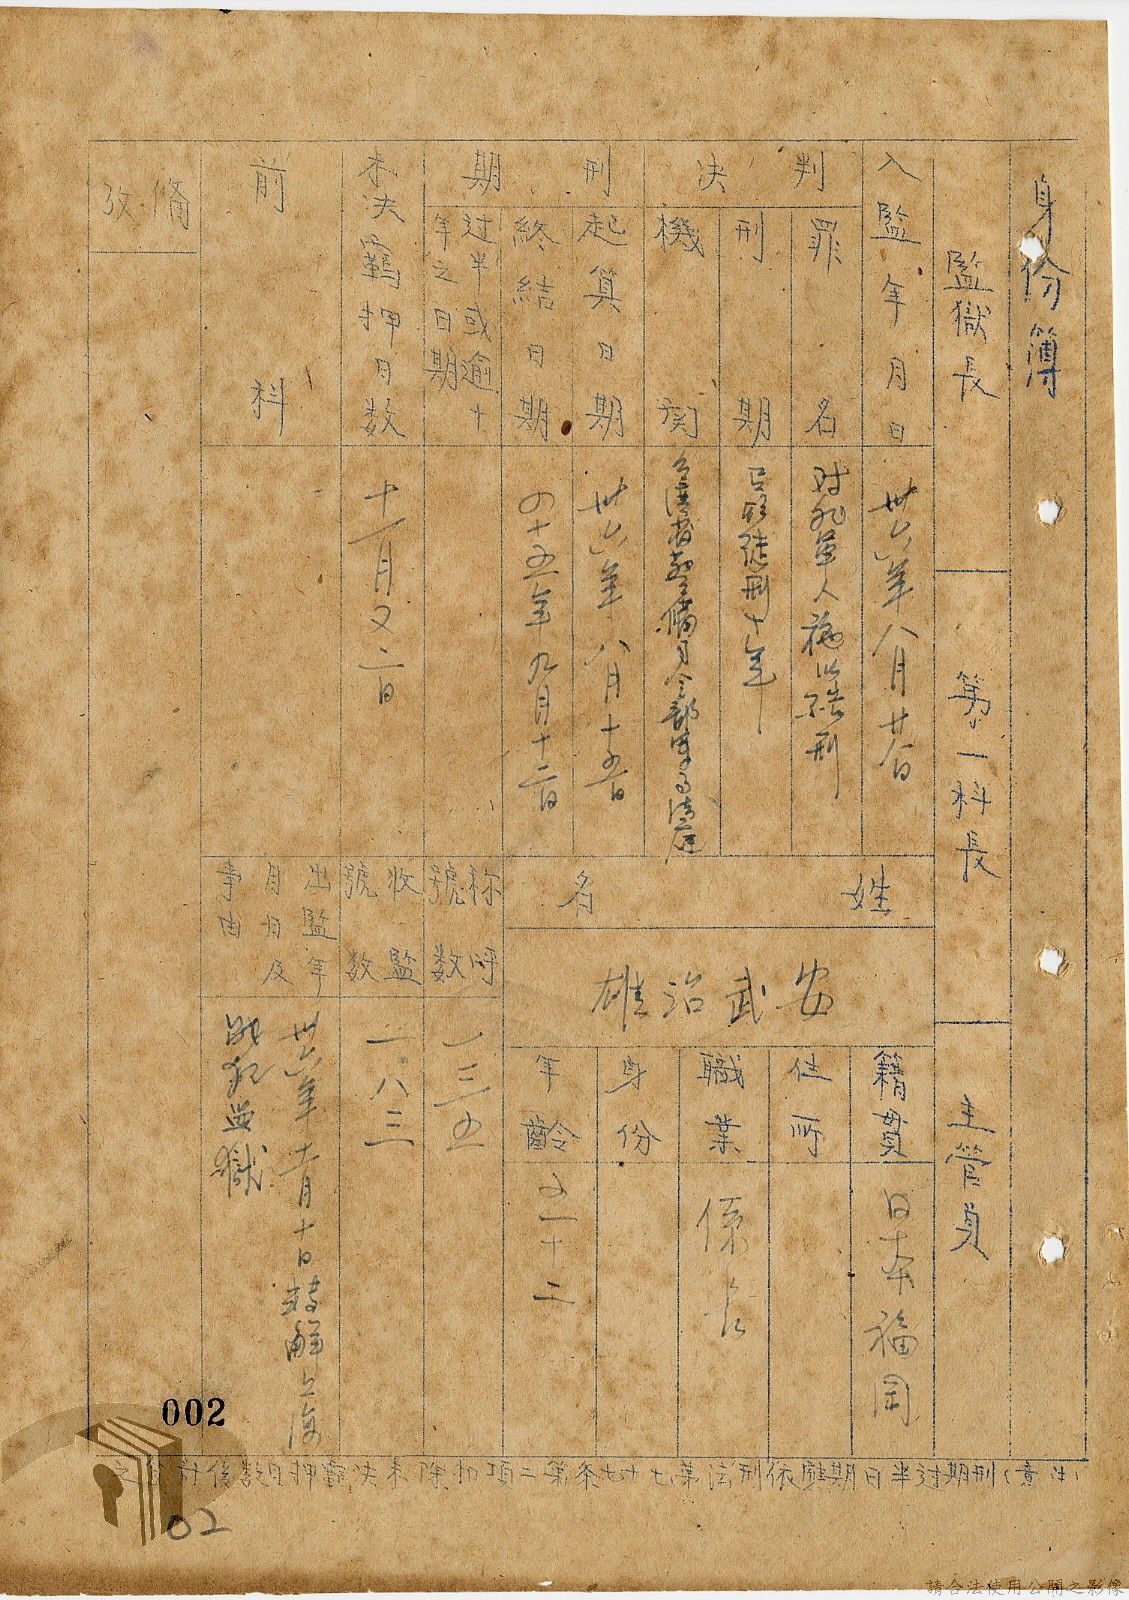 身份簿
監獄長
第一科長
主管員
入監年月日
卅六年八月廿八日
判決
罪名
对 軍人施以酷刑
刑期
有期徒刑十年
機関
台湾省警備司令部軍事法庭
刑期
起算日期
卅六年八月十五日
終結日期
四十五年九月十二日
过半或逾十年之日期
未決羈押日数
十一月又二日
前科
備攷
姓名
安武治雄
籍貫
日本福岡
住所
職業
係長
身份
年齡
五十二
称呼號数
一三五
收監號数
一八三
出監年月日及事由
卅六年十一月十日轉解上海
战犯监獄
(注意)刑期过半日期應依刑法第七十七条第二項扣除未決羈押日数後計算之
002
02
請合法使用公開之影像